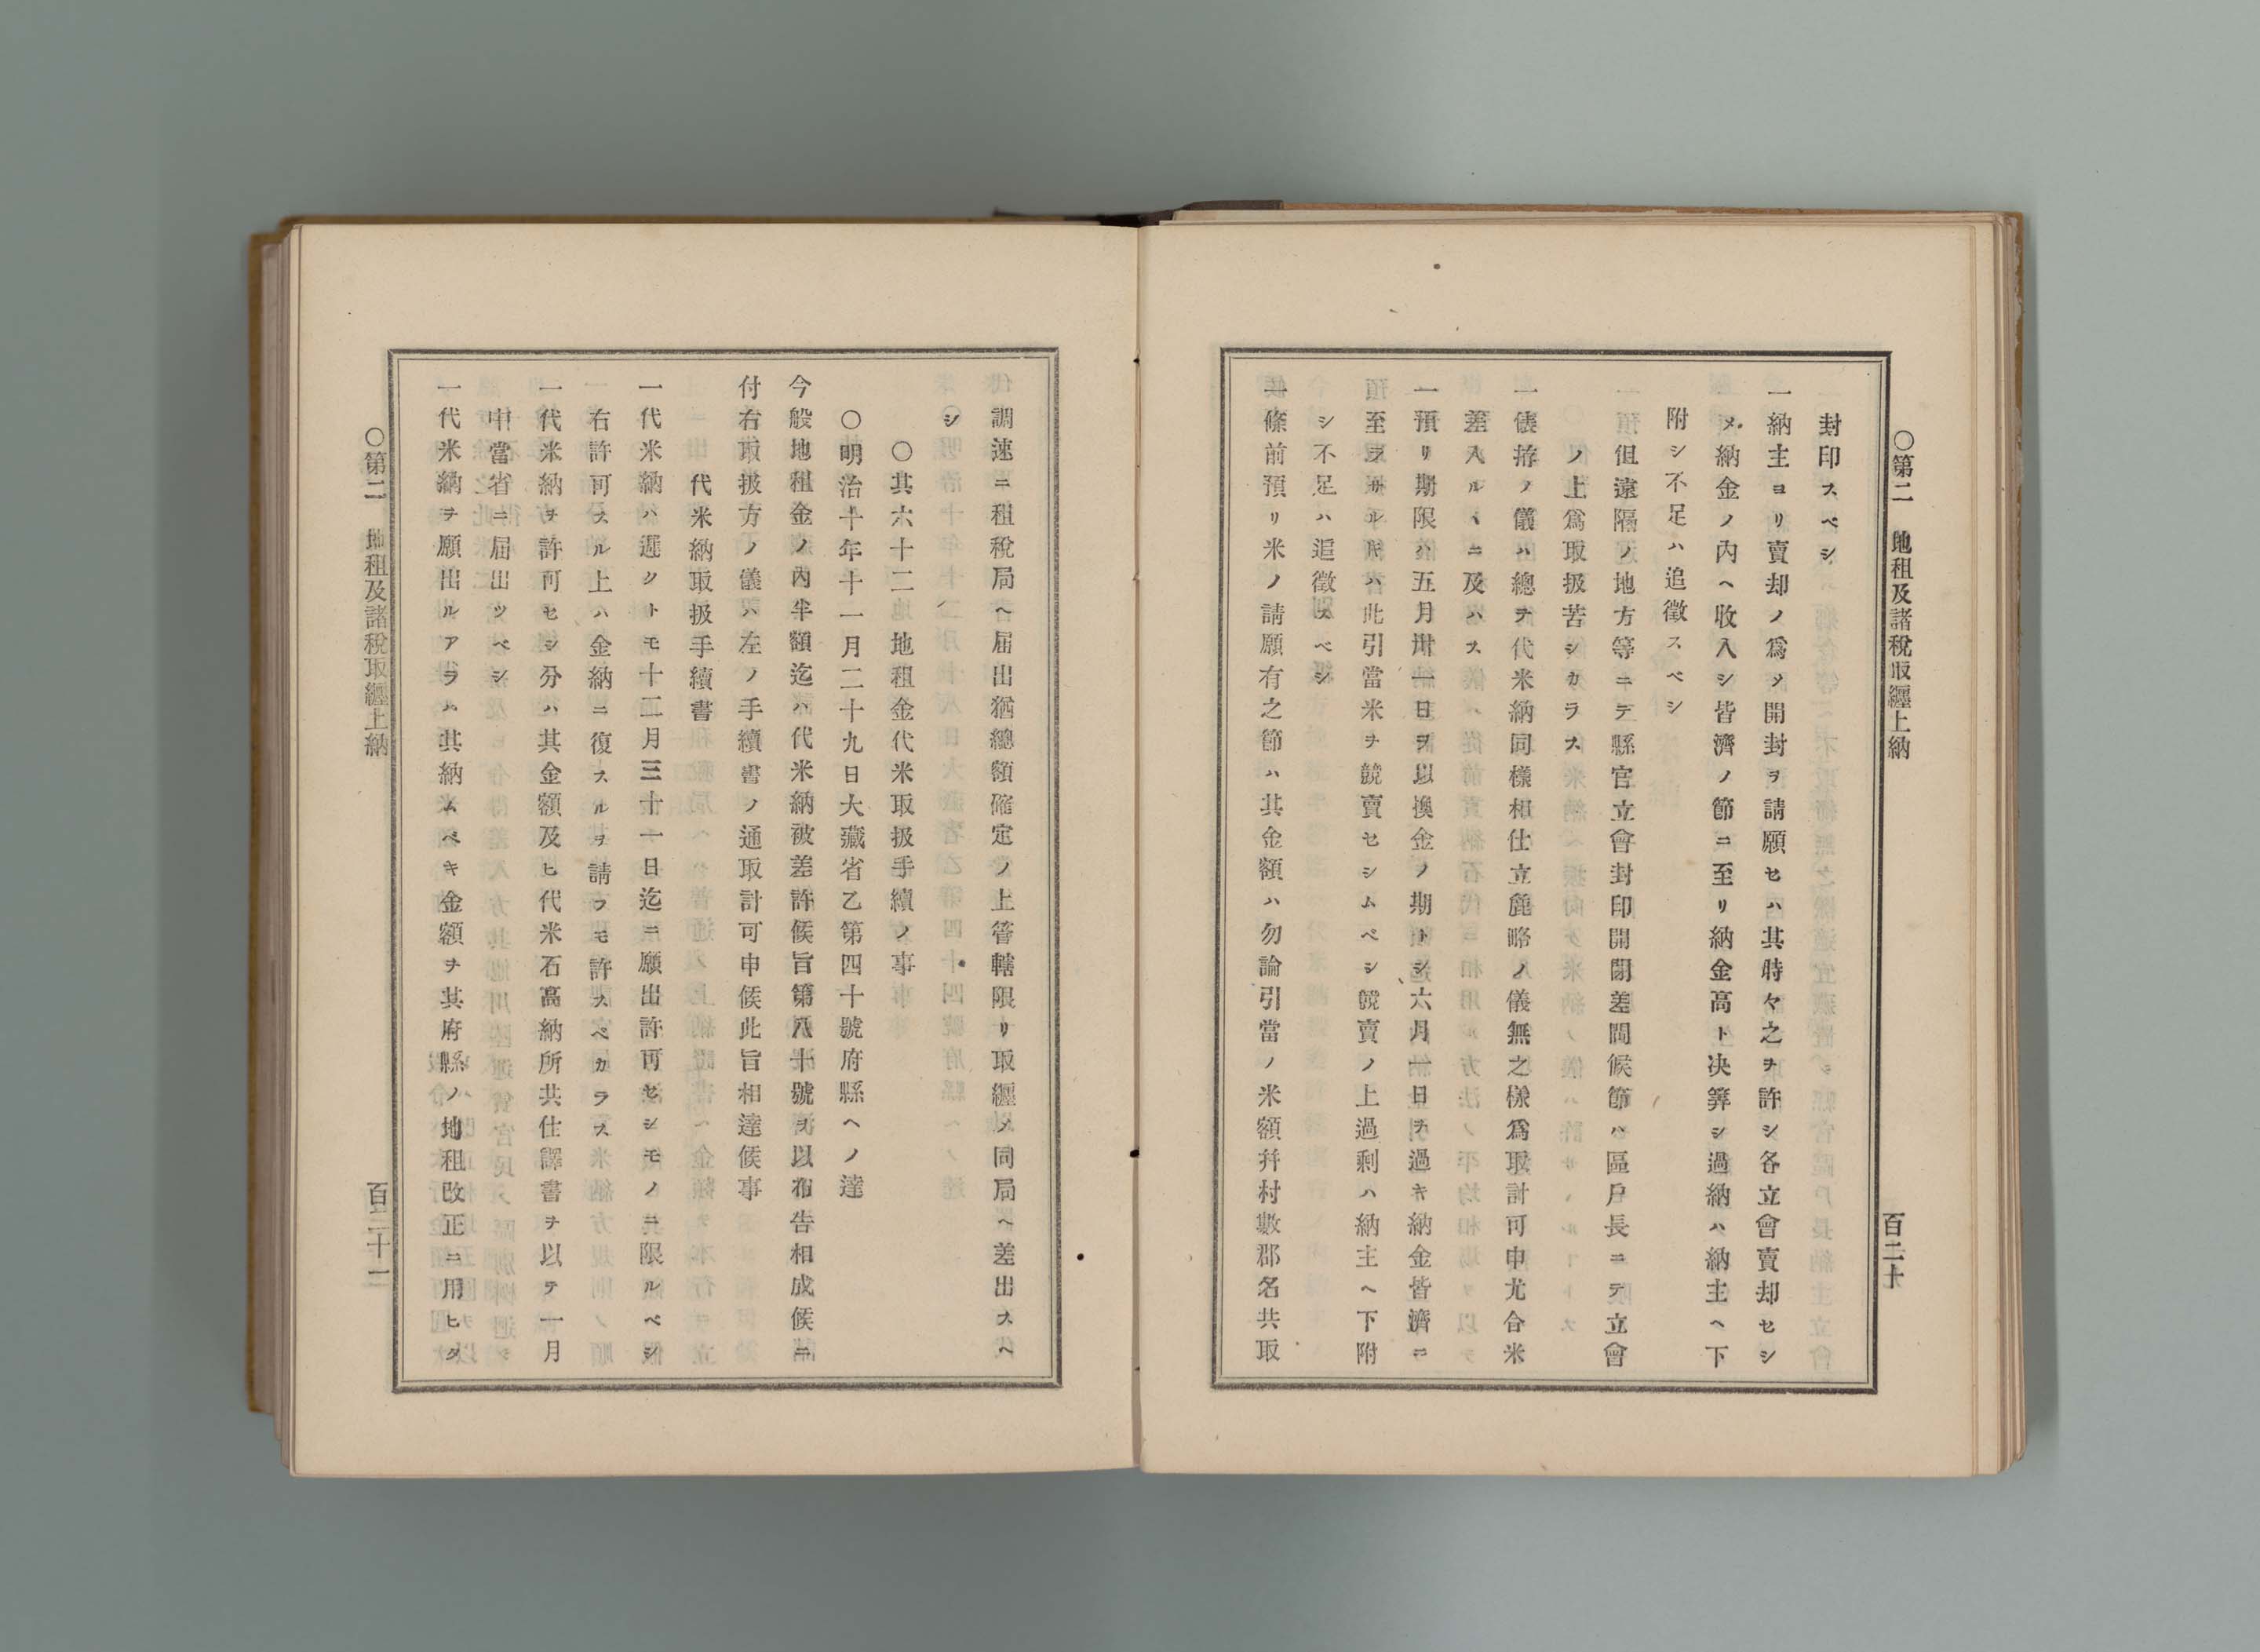 ○第二 地租及諸稅取纒上納 百二十
封印スベシ
一納主ヨリ賣却ノ爲メ開封ヲ請願セハ其時々之ヲ許シ各立會賣却セシ
メ納金ノ內ヘ收入シ皆濟ノ節ニ至リ納金高ト决算シ過納ハ納主ヘ下
附シ不足ハ追徵スベシ
但遠隔ノ地方等ニテ縣官立會封印開閉差閊候節ハ區戶長ニテ立會
ノ上爲取扱苦シカラス
一俵拵ノ儀ハ總テ代米納同樣相仕立麁略ノ儀無之樣爲取計可申尤合米
差入ルヽニ及ハス
一預リ期限ハ五月卅一日ヲ以換金ノ期トシ六月一日ヲ過キ納金皆濟ニ
至ラサル時ハ此引當米ヲ競賣セシムベシ競賣ノ上過剩ハ納主ヘ下附
シ不足ハ追徵スベシ
一條前預リ米ノ請願有之節ハ其金額ハ勿論引當ノ米額幷村數郡名共取
調速ニ租稅局ヘ届出猶總額確定ノ上管轄限リ取纒メ同局ヘ差出スヘ
シ
○其六十二 地租金代米取扱手續ノ事
○明治十年十一月二十九日大藏省乙第四十號府縣ヘノ達
今般地租金ノ內半額迄ハ代米納被差許候旨第八十號ヲ以布告相成候ニ
付右取扱方ノ儀ハ左ノ手續書ノ通取計可申候此旨相達候事
代米納取扱手續書
一代米納ハ遲クトモ十二月三十一日迄ニ願出許可セシモノニ限ルベシ
右許可スル上ハ金納ニ復スルヲ請フモ許スベカラス
一代米納ヲ許可セシ分ハ其金額及ヒ代米石高納所共仕譯書ヲ以テ一月
中當省ニ届出ツベシ
一代米納ヲ願出ルアラハ其納ムベキ金額ヲ其府縣ノ地租改正ニ用ヒタ
○第二 地租及諸稅取纒上納 百二十一